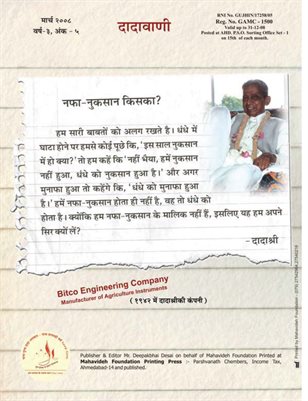 मार्च २००८
वर्ष-३, अंक - ५
दादावाणी
RNI No. GUJHIN/17258/05
Reg. No. GAMC - 1500
Valid up to 31-12-08
Posted at AHD. P.S.O. Sorting Office Set - 1
on 15th of each month.
नफा-नुकसान किसका?
हम सारी बाबतों को अलग रखते है। धंधे में
घाटा होने पर हमसे कोई पूछे कि, 'इस साल नुकसान
में हो क्या?' तो हम कहें कि 'नहीं भैया, हमें नुकसान
नहीं हुआ, धंधे को नुकसान हुआ है।' और अगर
मुनाफा हुआ तो कहेंगे कि, 'धंधे को मुनाफा हुआ
है।' हमें नफा-नुकसान होता ही नहीं है, वह तो धंधे को
होता है। क्योंकि हम नफा-नुकसान के मालिक नहीं हैं, इसलिए यह हम अपने
सिर क्यों लें?
- दादाश्री
Bitco Engineering Company
Manufacturer of Agriculture Instruments
( १९४२ में दादाश्रीकी कंपनी )
Publisher & Editor Mr. Deepakbhai Desai on behalf of Mahavideh Foundation Printed at
Mahavideh Foundation Printing Press :- Parshvanath Chembers, Income Tax,
Ahmedabad-14 and published.